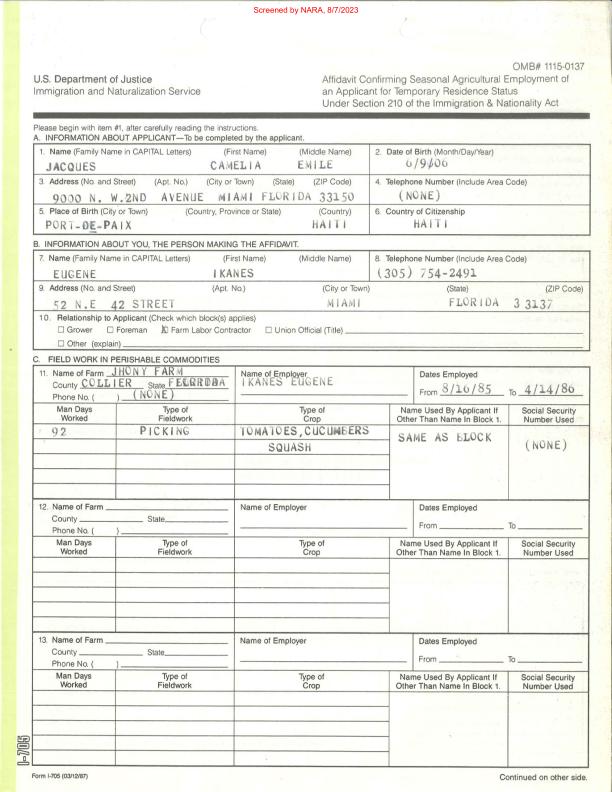 Screened by NARA, 8/7/2023
OMB# 1115-0137
U.S. Department of Justice
Immigration and Naturalization Service
Affidavit Confirming Seasonal Agricultural Employment of
an Applicant for Temporary Residence Status
Under Section 210 of the Immigration & Nationality Act
Please begin with item #1, after carefully reading the instructions.
A. INFORMATION ABOUT APPLICANT—To be completed by the applicant.
1. Name (Family Name in CAPITAL Letters) (First Name) (Middle Name)
JACQUES CAMELIA EMILE
2. Date of Birth (Month/Day/Year)
3. Address (No. and Street) (Apt. No.) (City or Town) (State) (ZIP Code)
9000 N. W.2ND AVENUE MIAMI FLORIDA 33150
4. Telephone Number (Include Area Code)
(NONE)
5. Place of Birth (City or Town) (Country, Province or State) (Country)
PORT-DE-PAIX HAITI
6. Country of Citizenship
HAITI
B. INFORMATION ABOUT YOU, THE PERSON MAKING THE AFFIDAVIT.
7. Name (Family Name in CAPITAL Letters) (First Name) (Middle Name)
EUGENE IKANES
8. Telephone Number (Include Area Code)
(305) 754-2491
9. Address (No. and Street) (Apt. No.) (City or Town) (State) (ZIP Code)
52 N.E 42 STREET MIAMI FLORIDA 3 3137
10. Relationship to Applicant (Check which block(s) applies)
☐ Grower ☐ Foreman ☒ Farm Labor Contractor ☐ Union Official (Title)
☐ Other (explain)
C. FIELD WORK IN PERISHABLE COMMODITIES
11. Name of Farm JHONY FARM
County COLLIER State
Phone No. ( ) (NONE)
Name of Employer
IKANES EUGENE
Dates Employed
From 8/16/85 To 4/14/86
Man Days Worked Type of Fieldwork Type of Crop Name Used By Applicant If Other Than Name In Block 1. Social Security Number Used
92 PICKING TOMATOES, CUCUMBERS
SQUASH
SAME AS BLOCK
(NONE)
12. Name of Farm
County State
Phone No. ( )
Name of Employer
Dates Employed
From To
Man Days Worked Type of Fieldwork Type of Crop Name Used By Applicant If Other Than Name In Block 1. Social Security Number Used
13. Name of Farm
County State
Phone No. ( )
Name of Employer
Dates Employed
From To
Man Days Worked Type of Fieldwork Type of Crop Name Used By Applicant If Other Than Name In Block 1. Social Security Number Used
I-705
Form I-705 (03/12/87)
Continued on other side.